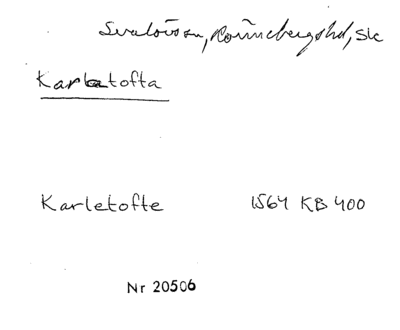 Svalövssn, Rönnebergshd, Sk
Karlatofta
Karletofte 1564 KB 400
Nr 20506